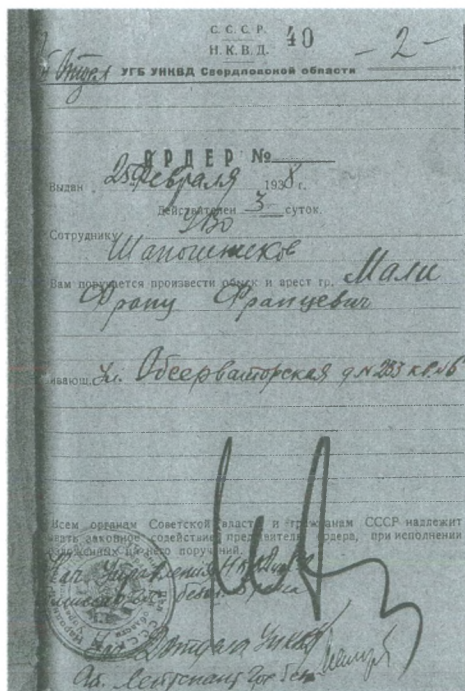 С. С. С. Р. 40
Н. К. В. Д. – 2 –
Отдел УГБ УНКВД Свердловской области
ОРДЕР №
Выдан 25 февраля 1938 г.
Действителен 3 суток.
Сотруднику УВО
Шапошников
Вам поручается произвести обыск и арест гр. Мали
Франц Францевич
Ул. Обсерваторская д № 283 кв. № 6
Всем органам Советской власти и гражданам СССР надлежит
законное содействие предъявителю ордера, при исполнении
него поручений.
Нач. Управления НКВД
Нач Отдела УНКВД
Лейтенант Гос Без